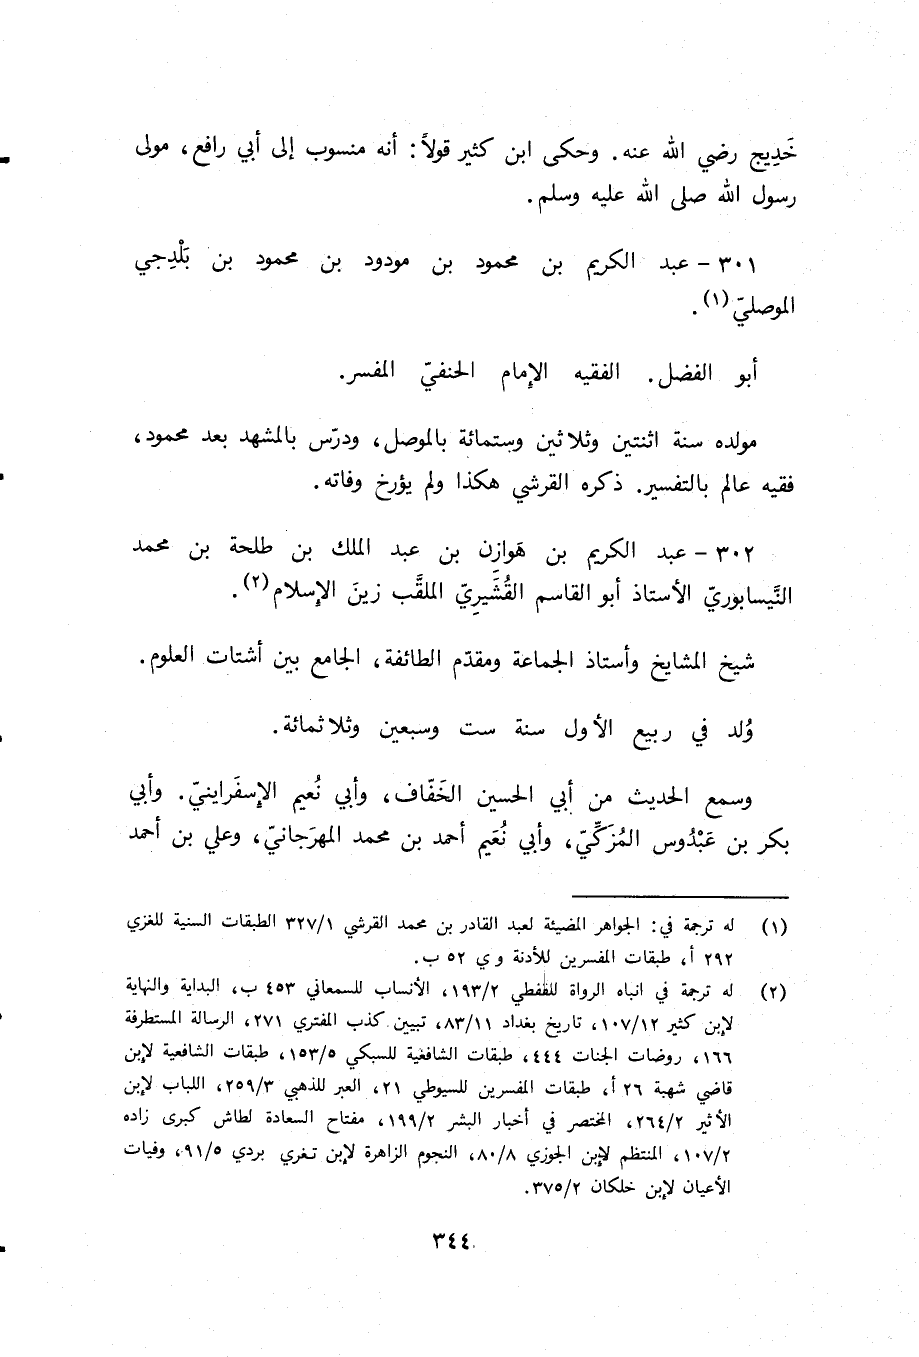 خَدِيج رضي الله عنه. وحكى ابن كثير قولاً: أنه منسوب إلى أبي رافع، مولى
رسول الله صلى الله عليه وسلم.
٣٠١ – عبد الكريم بن محمود بن مودود بن محمود بن بَلْدِجي
الموصليّ(١).
أبو الفضل. الفقيه الإمام الحنفيّ المفسر.
مولده سنة اثنتين وثلاثين وستمائة بالموصل، ودرّس بالمشهد بعد محمود،
فقيه عالم بالتفسير. ذكره القرشي هكذا ولم يؤرخ وفاته.
٣٠٢ – عبد الكريم بن هَوازِن بن عبد الملك بن طلحة بن محمد
النَّيسابوريّ الأستاذ أبو القاسم القُشَيرِيّ الملقَّب زينَ الإسلام(٢).
شيخ المشايخ وأستاذ الجماعة ومقدّم الطائفة، الجامع بين أشتات العلوم.
وُلد في ربيع الأول سنة ست وسبعين وثلاثمائة.
وسمع الحديث من أبي الحسين الخَفّاف، وأبي نُعيم الإسفَراينيّ. وأبي
بكر بن عَبْدُوس المُزَكِّيّ، وأبي نُعَيم أحمد بن محمد المهرَجانيّ، وعلي بن أحمد
(١) له ترجمة في: الجواهر المضيئة لعبد القادر بن محمد القرشي ٣٢٧/١ الطبقات السنية للغزي
٢٩٢ أ، طبقات المفسرين للأدنة و ي ٥٢ ب.
(٢) له ترجمة في انباه الرواة للقفطي ١٩٣/٢، الأنساب للسمعاني ٤٥٣ ب، البداية والنهاية
لإبن كثير ١٠٧/١٢، تاريخ بغداد ٨٣/١١، تبيين كذب المفتري ٢٧١، الرسالة المستطرفة
١٦٦، روضات الجنات ٤٤٤، طبقات الشافعية للسبكي ١٥٣/٥، طبقات الشافعية لإبن
قاضي شهبة ٢٦ أ، طبقات المفسرين للسيوطي ٢١، العبر للذهبي ٢٥٩/٣، اللباب لإبن
الأثير ٢٦٤/٢، المختصر في أخبار البشر ١٩٩/٢، مفتاح السعادة لطاش كبرى زاده
١٠٧/٢، المنتظم لإبن الجوزي ٨٠/٨، النجوم الزاهرة لإبن تغري بردي ٩١/٥، وفيات
الأعيان لإبن خلكان ٣٧٥/٢.
٣٤٤